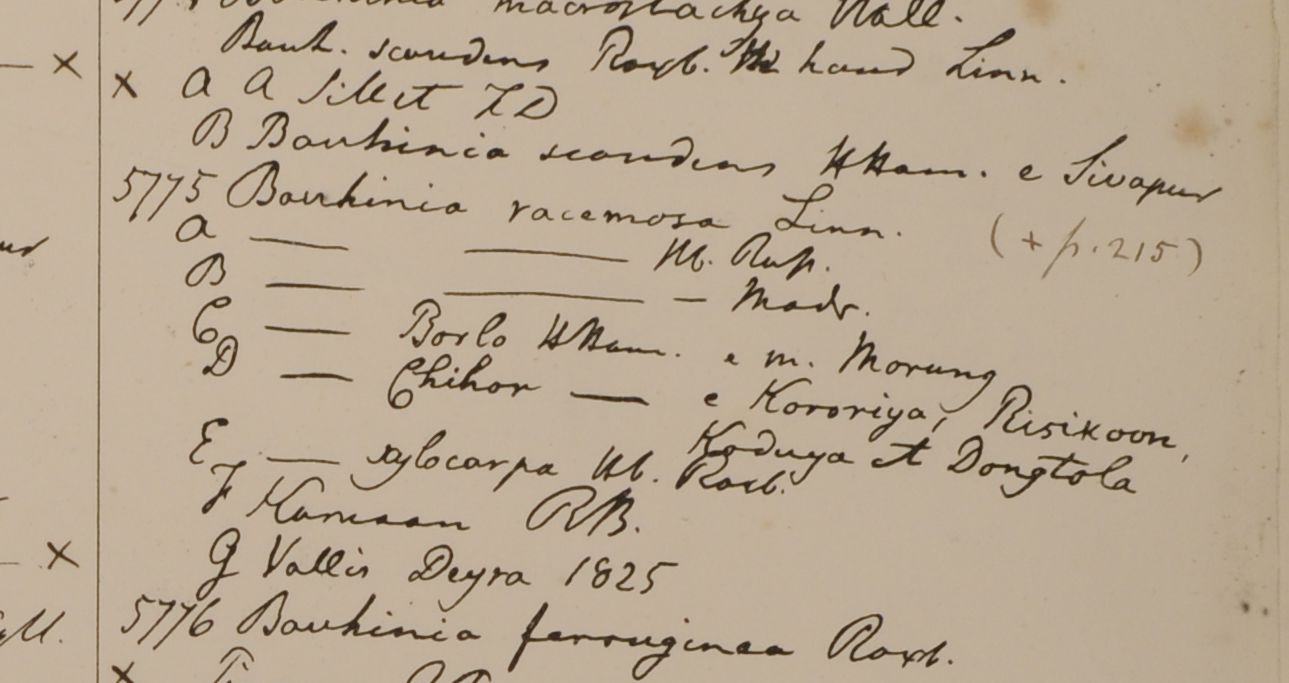 macrostachya Wall.
Bauh. scandens Roxb. haud Linn.
× A A Sillet FD
B Bauhinia scandens HHam. e Sivapur
5775 Bauhinia racemosa Linn. (+ p. 215)
A — — Hb. Russ.
B — — — Madr.
C — Borlo HHam. e m. Morung
D — Chihor — e Kororiya, Risikoon,
Koduya et Dongtola
E — xylocarpa Hb. Roxb.
F Kamaon RB.
G Vallis Deyra 1825
5776 Bauhinia ferruginea Roxb.